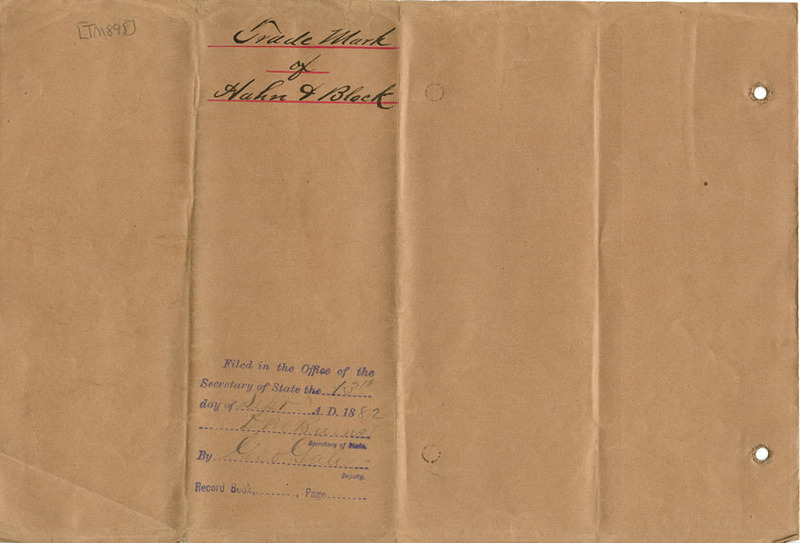 [TM898]
Trade Mark
of
Hahn & Block
Filed in the Office of the
Secretary of State the 13th
day of Sept A. D. 1882
Secretary of State.
By
Deputy.
Record Book, , Page